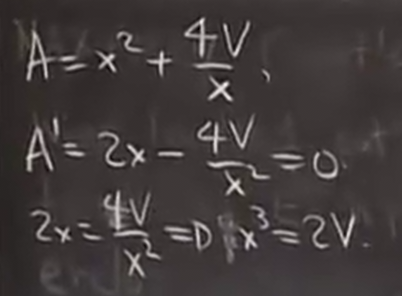 A = x² + 4V/x,
A' = 2x - 4V/x² = 0.
2x = 4V/x² => x³ = 2V.